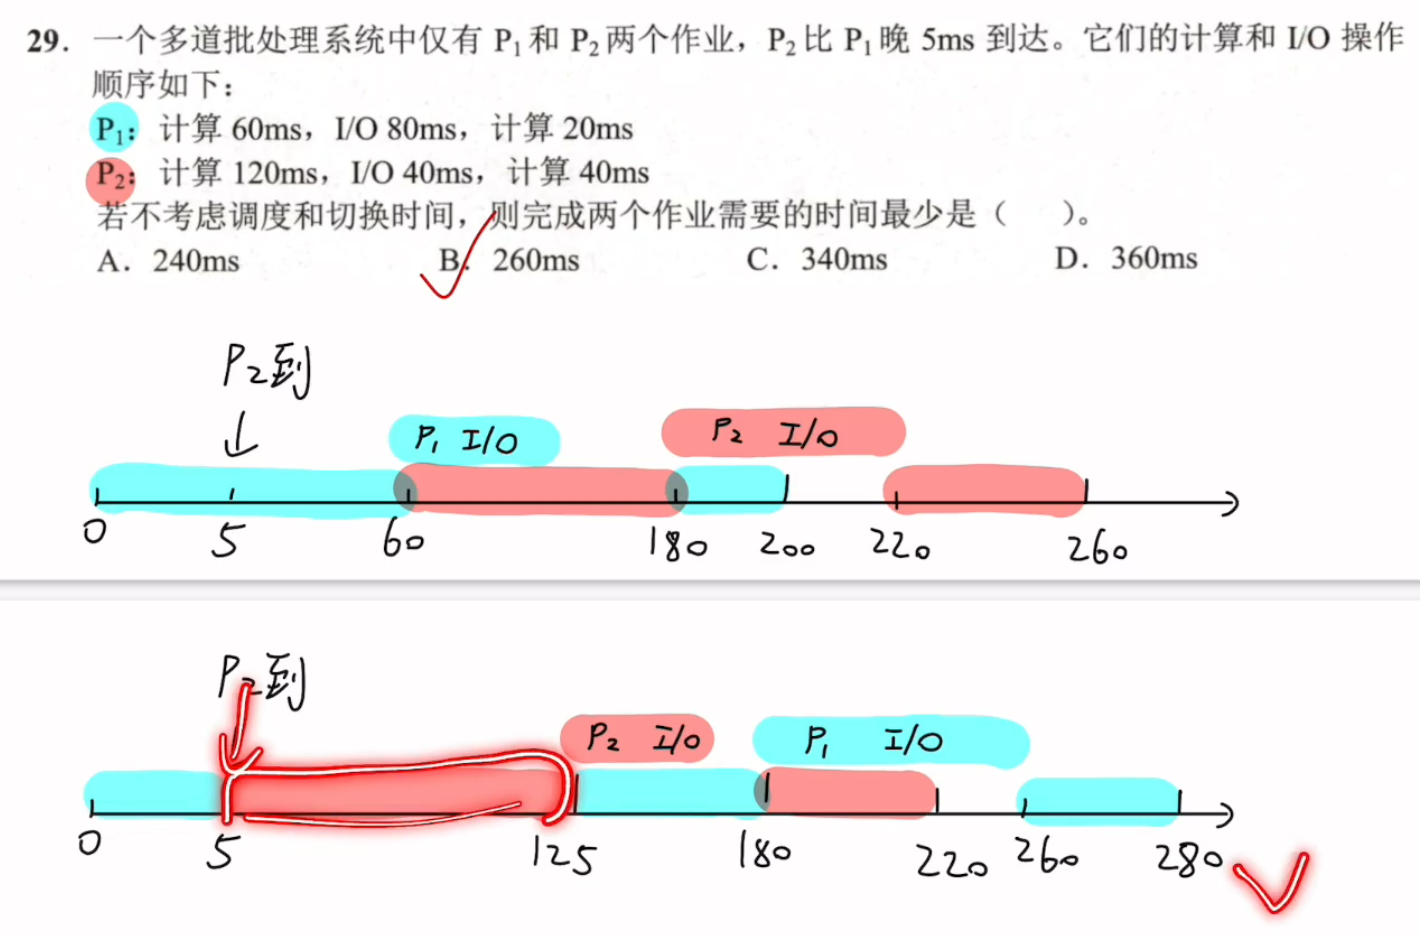 29. 一个多道批处理系统中仅有 P₁ 和 P₂ 两个作业，P₂ 比 P₁ 晚 5ms 到达。它们的计算和 I/O 操作
顺序如下：
P₁：计算 60ms，I/O 80ms，计算 20ms
P₂：计算 120ms，I/O 40ms，计算 40ms
若不考虑调度和切换时间，则完成两个作业需要的时间最少是（ ）。
A. 240ms B. 260ms C. 340ms D. 360ms
P₂到
P₁ I/O P₂ I/O
0 5 60 180 200 220 260
P₂到
P₂ I/O P₁ I/O
0 5 125 180 220 260 280